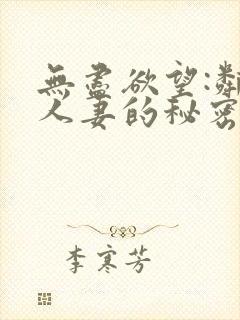 無盡欲望:鄰
人妻的秘密
李寒芳